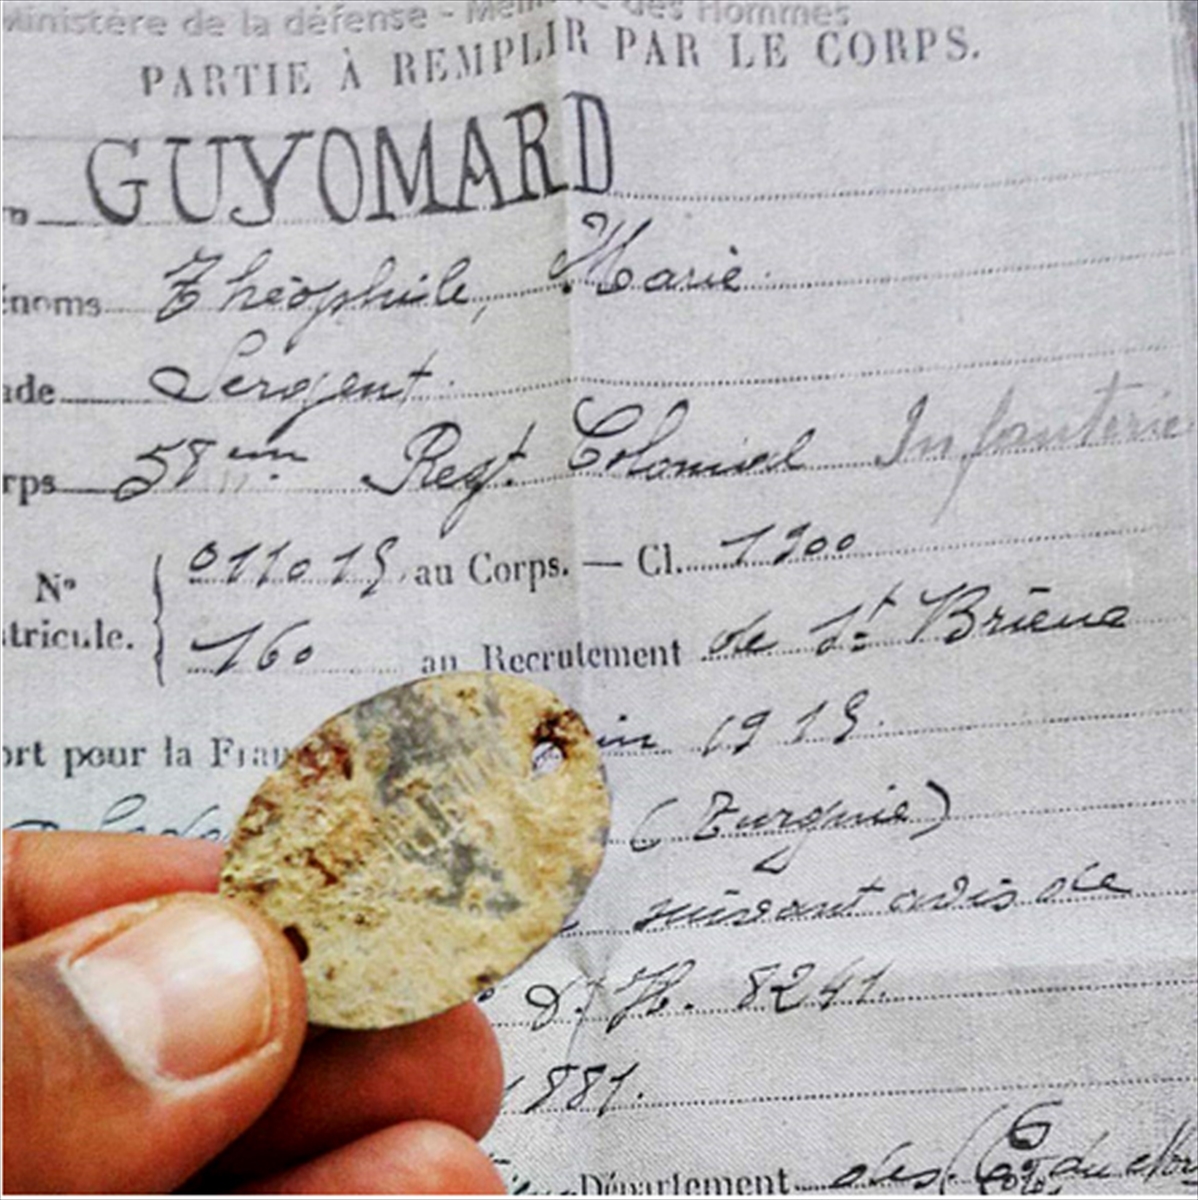 Ministère de la défense - Mémoire des Hommes
PARTIE À REMPLIR PAR LE CORPS.
GUYOMARD
énoms Théophile, Marie
ade Sergent
rps 58ème Regt. Colonial Infanterie
N°
tricule.
011015 au Corps. — Cl. 1900
160 au Recrutement de St Brieuc
ort pour la Fran in 1915.
(Turquie)
suivant avis de
D. H. 8241.
1881.
Département des Côtes du Nor